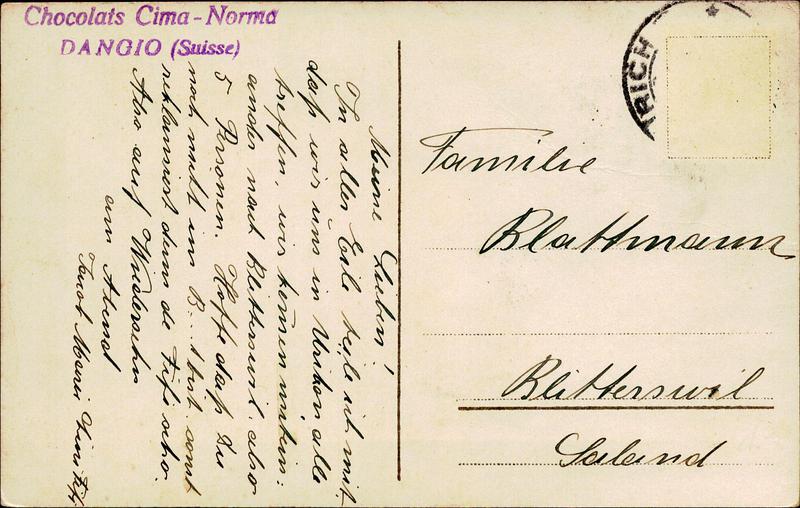 Chocolats Cima-Norma
DANGIO (Suisse)
Meine Lieben!
In aller Eile teile ich mit
daß wir uns in Uerikon alle
treffen, wir können mitein-
ander nach Blitterswil. also
5 Personen. Hoffe daß Du
noch nicht im B...
reklamierst denn de
Also auf Wiedersehn
am Abend
RICH
Familie
Blattmann
Blitterswil
Saland